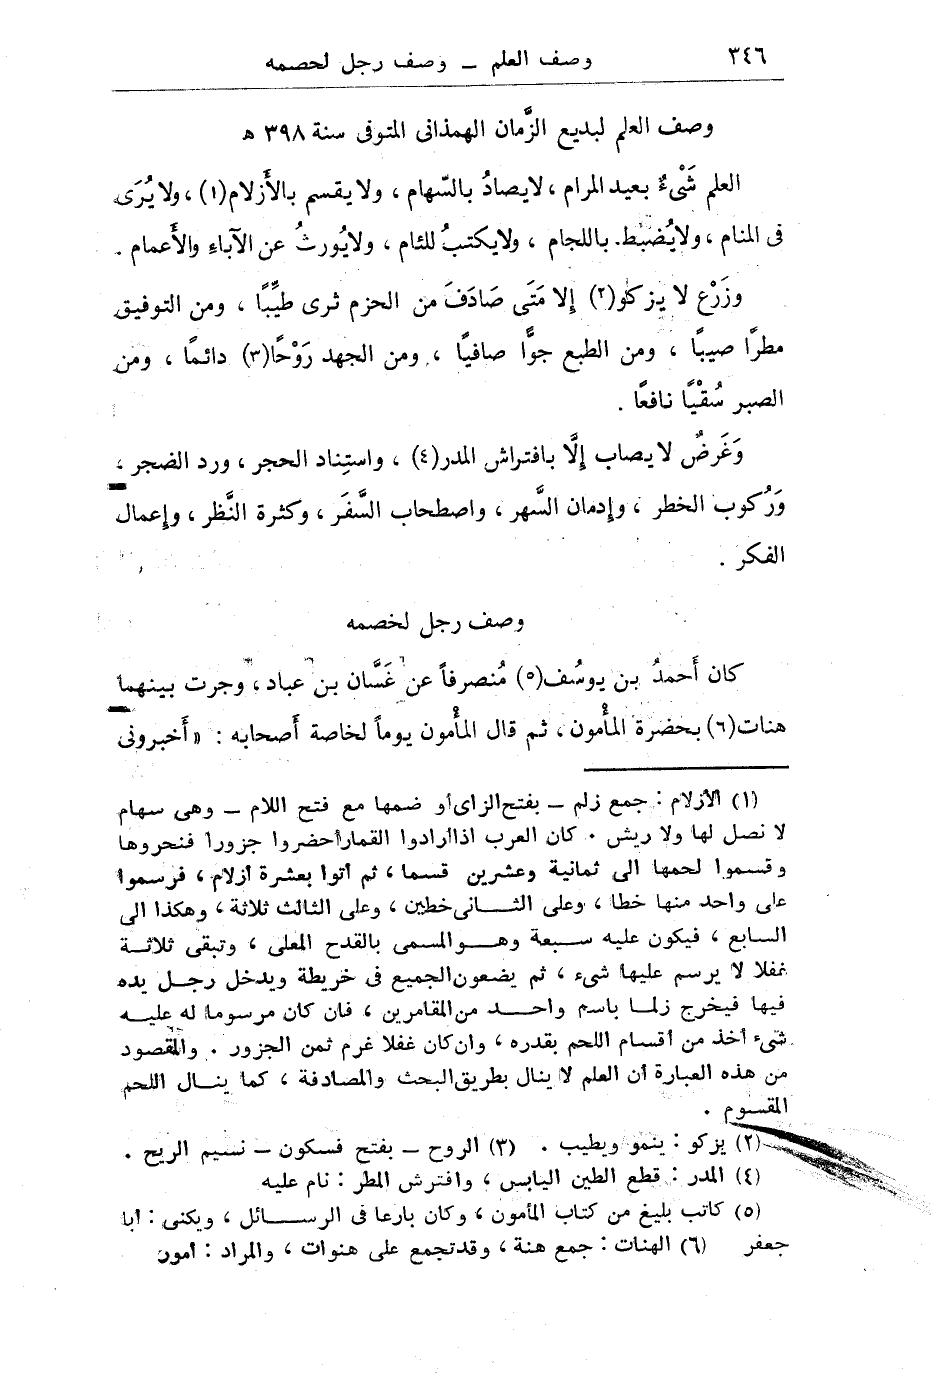 ٣٤٦
وصف العلم ــ وصف رجل لخصمه
وصف العلم لبديع الزَّمان الهمذانى المتوفى سنة ٣٩٨ ه
العلم شَىْءٌ بعيد المرام ، لا يصادُ بالسّهام ، ولا يقسم بالأَزلام(١) ، ولا يُرَى
فى المنام ، ولا يُضبَط باللجام ، ولا يكتبُ للئام ، ولا يُورثُ عن الآباء والأَعمام .
وزَرْع لا يزكو(٢) إلا مَتَى صَادَفَ من الحزم ثرى طيِّبًا ، ومن التوفيق
مطرًا صيبًا ، ومن الطبع جوًّا صافيًا ، ومن الجهد رَوْحًا(٣) دائمًا ، ومن
الصبر سُقْيًا نافعًا .
وَغَرضٌ لا يصاب إلَّا بافتراش المدر(٤) ، واستِناد الحجر ، ورد الضجر ،
وَرُكوب الخطر ، وإدمان السَّهر ، واصطحاب السَّفَر ، وكثرة النَّظر ، وإعمال
الفكر .
وصف رجل لخصمه
كان أَحمدُ بن يوسُف(٥) مُنصرفاً عن غَسَّان بن عباد ، وجرت بينهما
هنات(٦) بحضرة المأْمون ، ثم قال المأْمون يوماً لخاصة أَصحابه : « أَخبرونى
(١) الأزلام : جمع زلم ــ بفتح الزاى أو ضمها مع فتح اللام ــ وهى سهام
لا نصل لها ولا ريش . كان العرب اذا أرادوا القمار أحضروا جزورا فنحروها
وقسموا لحمها الى ثمانية وعشرين قسما ، ثم أتوا بعشرة أزلام ، فرسموا
على واحد منها خطا ، وعلى الثانى خطين ، وعلى الثالث ثلاثة ، وهكذا الى
السابع ، فيكون عليه سبعة وهو المسمى بالقدح المعلى ، وتبقى ثلاثة
غفلا لا يرسم عليها شىء ، ثم يضعون الجميع فى خريطة ويدخل رجل يده
فيها فيخرج زلما باسم واحد من المقامرين ، فان كان مرسوما له عليه
شىء أخذ من أقسام اللحم بقدره ، وان كان غفلا غرم ثمن الجزور . والمقصود
من هذه العبارة أن العلم لا ينال بطريق البحث والمصادفة ، كما ينال اللحم
المقسوم .
(٢) يزكو : ينمو ويطيب . (٣) الروح ــ بفتح فسكون ــ نسيم الريح .
(٤) المدر : قطع الطين اليابس ، وافترش المطر : نام عليه
(٥) كاتب بليغ من كتاب المأمون ، وكان بارعا فى الرسائل ، ويكنى : أبا
جعفر (٦) الهنات : جمع هنة ، وقد تجمع على هنوات ، والمراد : أمون